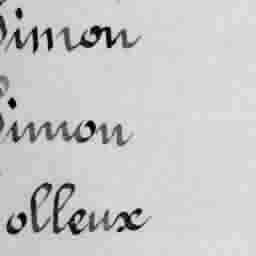 Simon
Simon
olleux